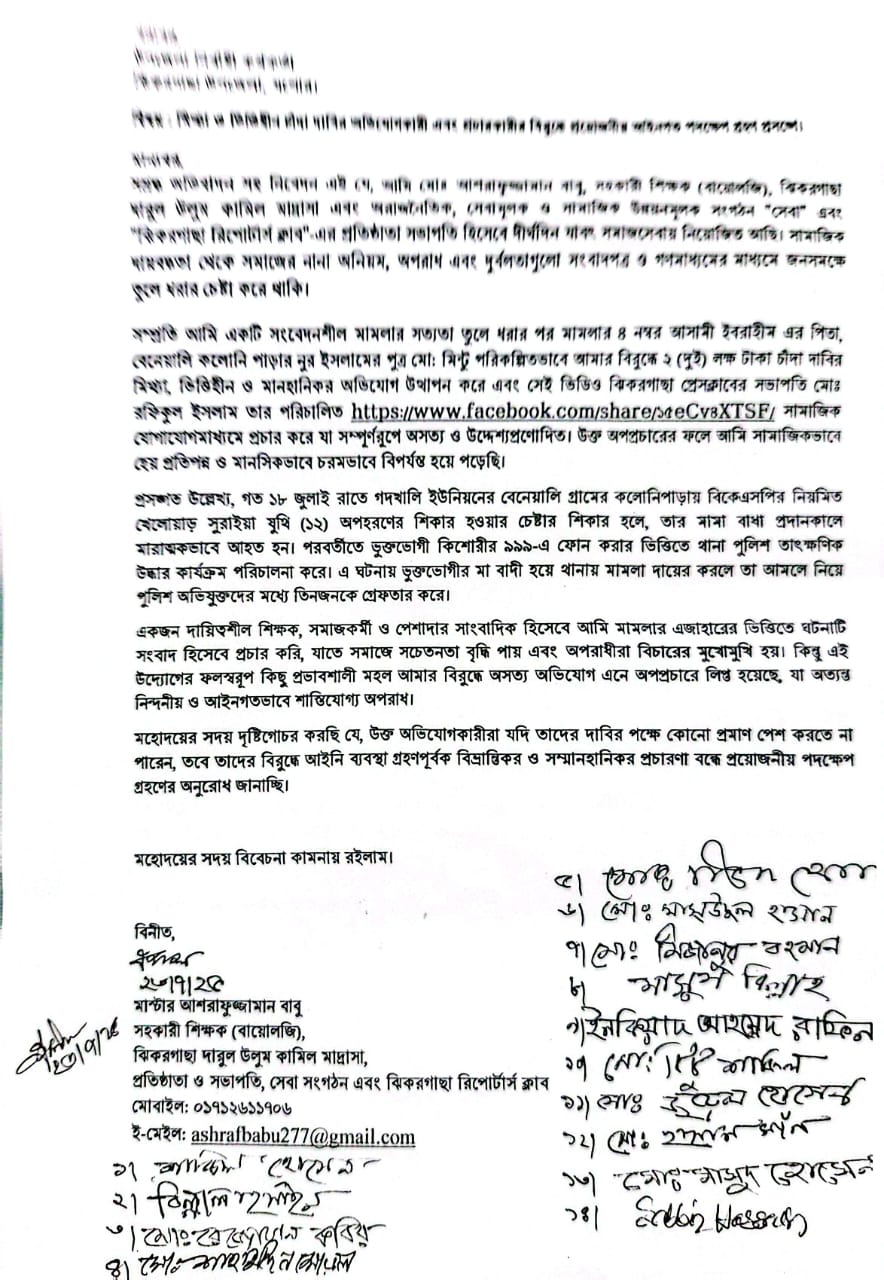 বরাবর
উপজেলা নির্বাহী কর্মকর্তা
ঝিকরগাছা উপজেলা, যশোর।
বিষয় : মিথ্যা ও ভিত্তিহীন চাঁদা দাবির অভিযোগকারী এবং প্রচারকারীর বিরুদ্ধে প্রয়োজনীয় আইনগত পদক্ষেপ গ্রহণ প্রসঙ্গে।
মহোদয়,
সম্মান অভিবাদন সহ নিবেদন এই যে, আমি মোঃ আশরাফুজ্জামান বাবু, সহকারী শিক্ষক (বায়োলজি), ঝিকরগাছা
দারুল উলুম কামিল মাদ্রাসা এবং অরাজনৈতিক, সেবামূলক ও সামাজিক উন্নয়নমূলক সংগঠন "সেবা" এবং
"ঝিকরগাছা রিপোর্টার্স ক্লাব"-এর প্রতিষ্ঠাতা সভাপতি হিসেবে দীর্ঘদিন যাবৎ সমাজসেবায় নিয়োজিত আছি। সামাজিক
দায়বদ্ধতা থেকে সমাজের নানা অনিয়ম, অপরাধ এবং দুর্বলতাগুলো সংবাদপত্র ও গণমাধ্যমের মাধ্যমে জনসমক্ষে
তুলে ধরার চেষ্টা করে থাকি।
সম্প্রতি আমি একটি সংবেদনশীল মামলার সত্যতা তুলে ধরার পর মামলার ৪ নম্বর আসামী ইবরাহীম এর পিতা,
বেনেয়ালি কলোনি পাড়ার নুর ইসলামের পুত্র মো: মিন্টু পরিকল্পিতভাবে আমার বিরুদ্ধে ২ (দুই) লক্ষ টাকা চাঁদা দাবির
মিথ্যা, ভিত্তিহীন ও মানহানিকর অভিযোগ উত্থাপন করে এবং সেই ভিডিও ঝিকরগাছা প্রেসক্লাবের সভাপতি মোঃ
রফিকুল ইসলাম তার পরিচালিত https://www.facebook.com/share/১৫eCv৪XTSF/ সামাজিক
যোগাযোগমাধ্যমে প্রচার করে যা সম্পূর্ণরূপে অসত্য ও উদ্দেশ্যপ্রণোদিত। উক্ত অপপ্রচারের ফলে আমি সামাজিকভাবে
হেয় প্রতিপন্ন ও মানসিকভাবে চরমভাবে বিপর্যস্ত হয়ে পড়েছি।
প্রসঙ্গত উল্লেখ্য, গত ১৮ জুলাই রাতে গদখালি ইউনিয়নের বেনেয়ালি গ্রামের কলোনিপাড়ায় বিকেএসপির নিয়মিত
খেলোয়াড় সুরাইয়া যুথি (১২) অপহরণের শিকার হওয়ার চেষ্টার শিকার হলে, তার মামা বাধা প্রদানকালে
মারাত্মকভাবে আহত হন। পরবর্তীতে ভুক্তভোগী কিশোরীর ৯৯৯-এ ফোন করার ভিত্তিতে থানা পুলিশ তাৎক্ষণিক
উদ্ধার কার্যক্রম পরিচালনা করে। এ ঘটনায় ভুক্তভোগীর মা বাদী হয়ে থানায় মামলা দায়ের করলে তা আমলে নিয়ে
পুলিশ অভিযুক্তদের মধ্যে তিনজনকে গ্রেফতার করে।
একজন দায়িত্বশীল শিক্ষক, সমাজকর্মী ও পেশাদার সাংবাদিক হিসেবে আমি মামলার এজাহারের ভিত্তিতে ঘটনাটি
সংবাদ হিসেবে প্রচার করি, যাতে সমাজে সচেতনতা বৃদ্ধি পায় এবং অপরাধীরা বিচারের মুখোমুখি হয়। কিন্তু এই
উদ্যোগের ফলস্বরূপ কিছু প্রভাবশালী মহল আমার বিরুদ্ধে অসত্য অভিযোগ এনে অপপ্রচারে লিপ্ত হয়েছে, যা অত্যন্ত
নিন্দনীয় ও আইনগতভাবে শাস্তিযোগ্য অপরাধ।
মহোদয়ের সদয় দৃষ্টিগোচর করছি যে, উক্ত অভিযোগকারীরা যদি তাদের দাবির পক্ষে কোনো প্রমাণ পেশ করতে না
পারেন, তবে তাদের বিরুদ্ধে আইনি ব্যবস্থা গ্রহণপূর্বক বিভ্রান্তিকর ও সম্মানহানিকর প্রচারণা বন্ধে প্রয়োজনীয় পদক্ষেপ
গ্রহণের অনুরোধ জানাচ্ছি।
মহোদয়ের সদয় বিবেচনা কামনায় রইলাম।
বিনীত,
২৩/৭/২৫
মাস্টার আশরাফুজ্জামান বাবু
সহকারী শিক্ষক (বায়োলজি),
ঝিকরগাছা দারুল উলুম কামিল মাদ্রাসা,
প্রতিষ্ঠাতা ও সভাপতি, সেবা সংগঠন এবং ঝিকরগাছা রিপোর্টার্স ক্লাব
মোবাইল: ০১৭১২৬১১৭০৬
ই-মেইল: ashrafbabu277@gmail.com
২৩/৭/২৫
১) হোসেন
২) বিল্লাল হুসাইন
৩) মোঃ রেদোয়ান কবির
৪) মোঃ
৫) মোঃ
৬) মোঃ মাহমুদুল হাসান
৭) মোঃ মিজানুর রহমান
৮) মাসুম বিল্লাহ
৯) ইনকিয়াদ আহমেদ রাফিন
১০) মো:
১১) মোঃ হোসেন
১২) মো:
১৩) মোঃ মাসুদ হোসেন
১৪)